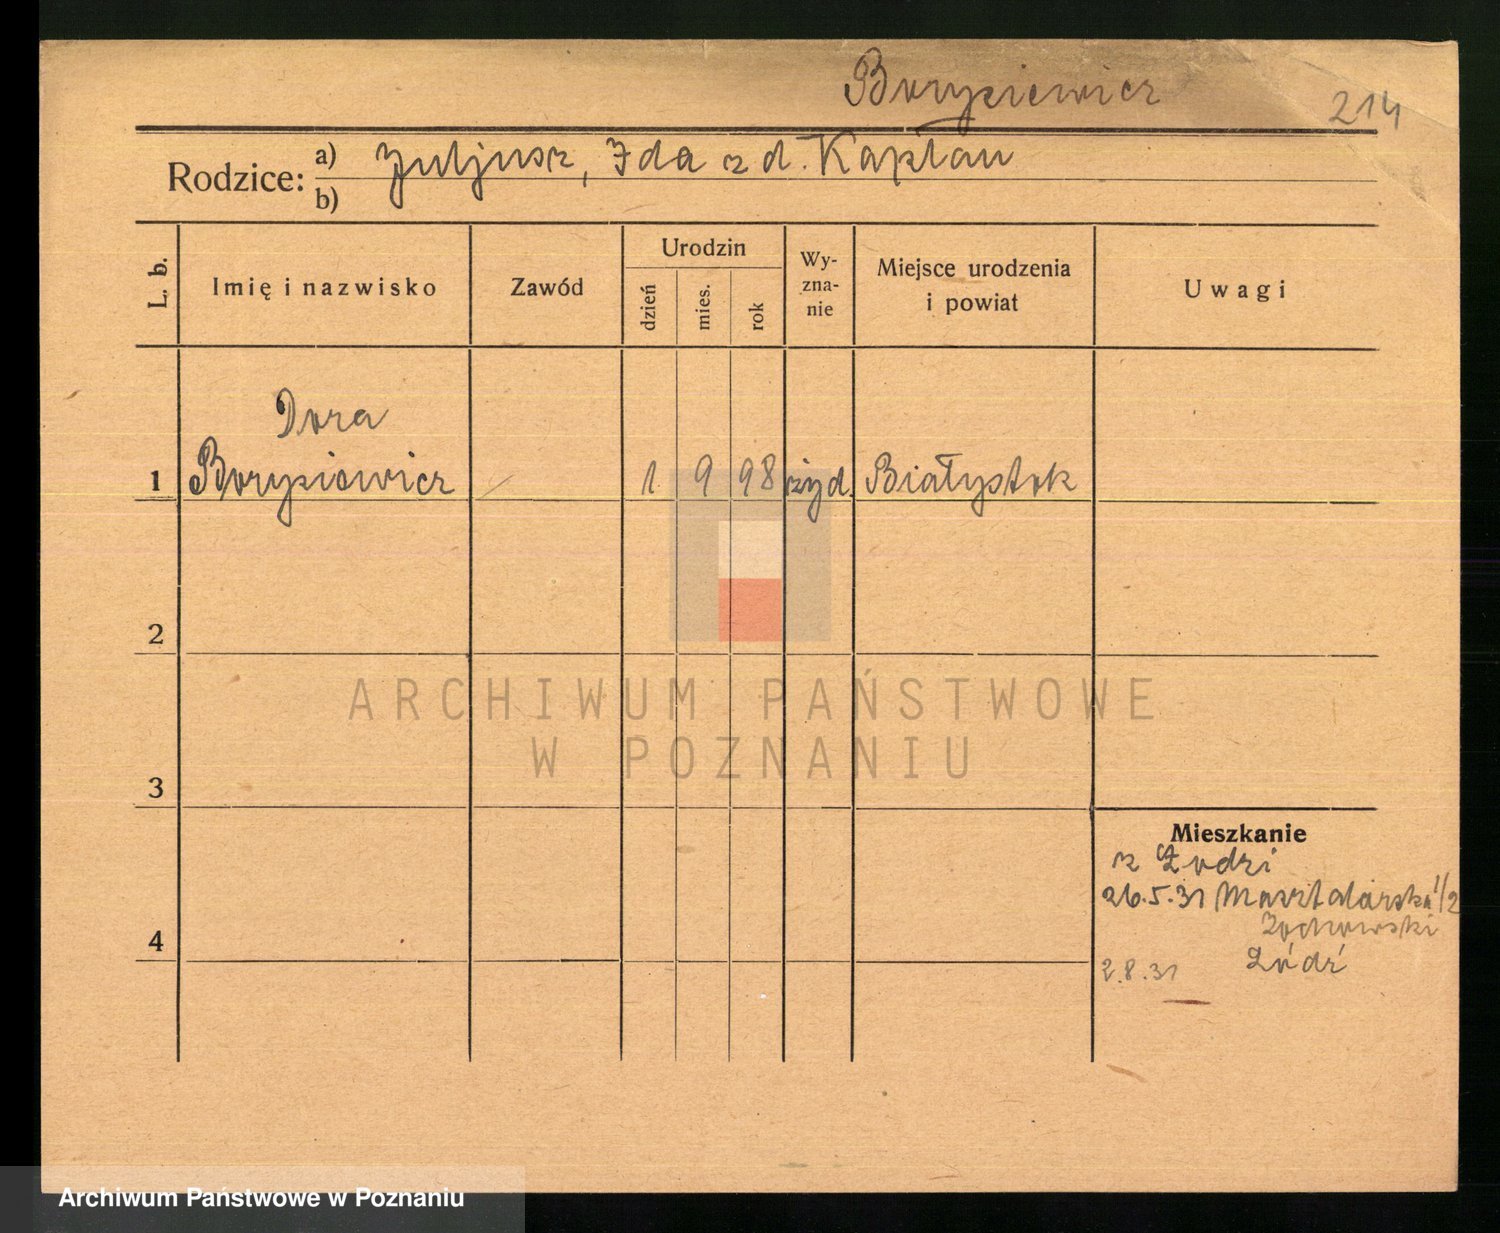 Borysiewicz
214
Rodzice: a) Juljusz, Ida z d. Kapłan
b)
L. b.
Imię i nazwisko
Zawód
Urodzin
dzień
mies.
rok
Wy-
zna-
nie
Miejsce urodzenia
i powiat
Uwagi
Dora
1 Borysiewicz / 1 9 98 żyd. Białystok
2
3
4
Mieszkanie
z Łodzi
26.5.31 Masztalarska 1/2
Żochowski
2.8.31 Łódź
ARCHIWUM PAŃSTWOWE
W POZNANIU
Archiwum Państwowe w Poznaniu